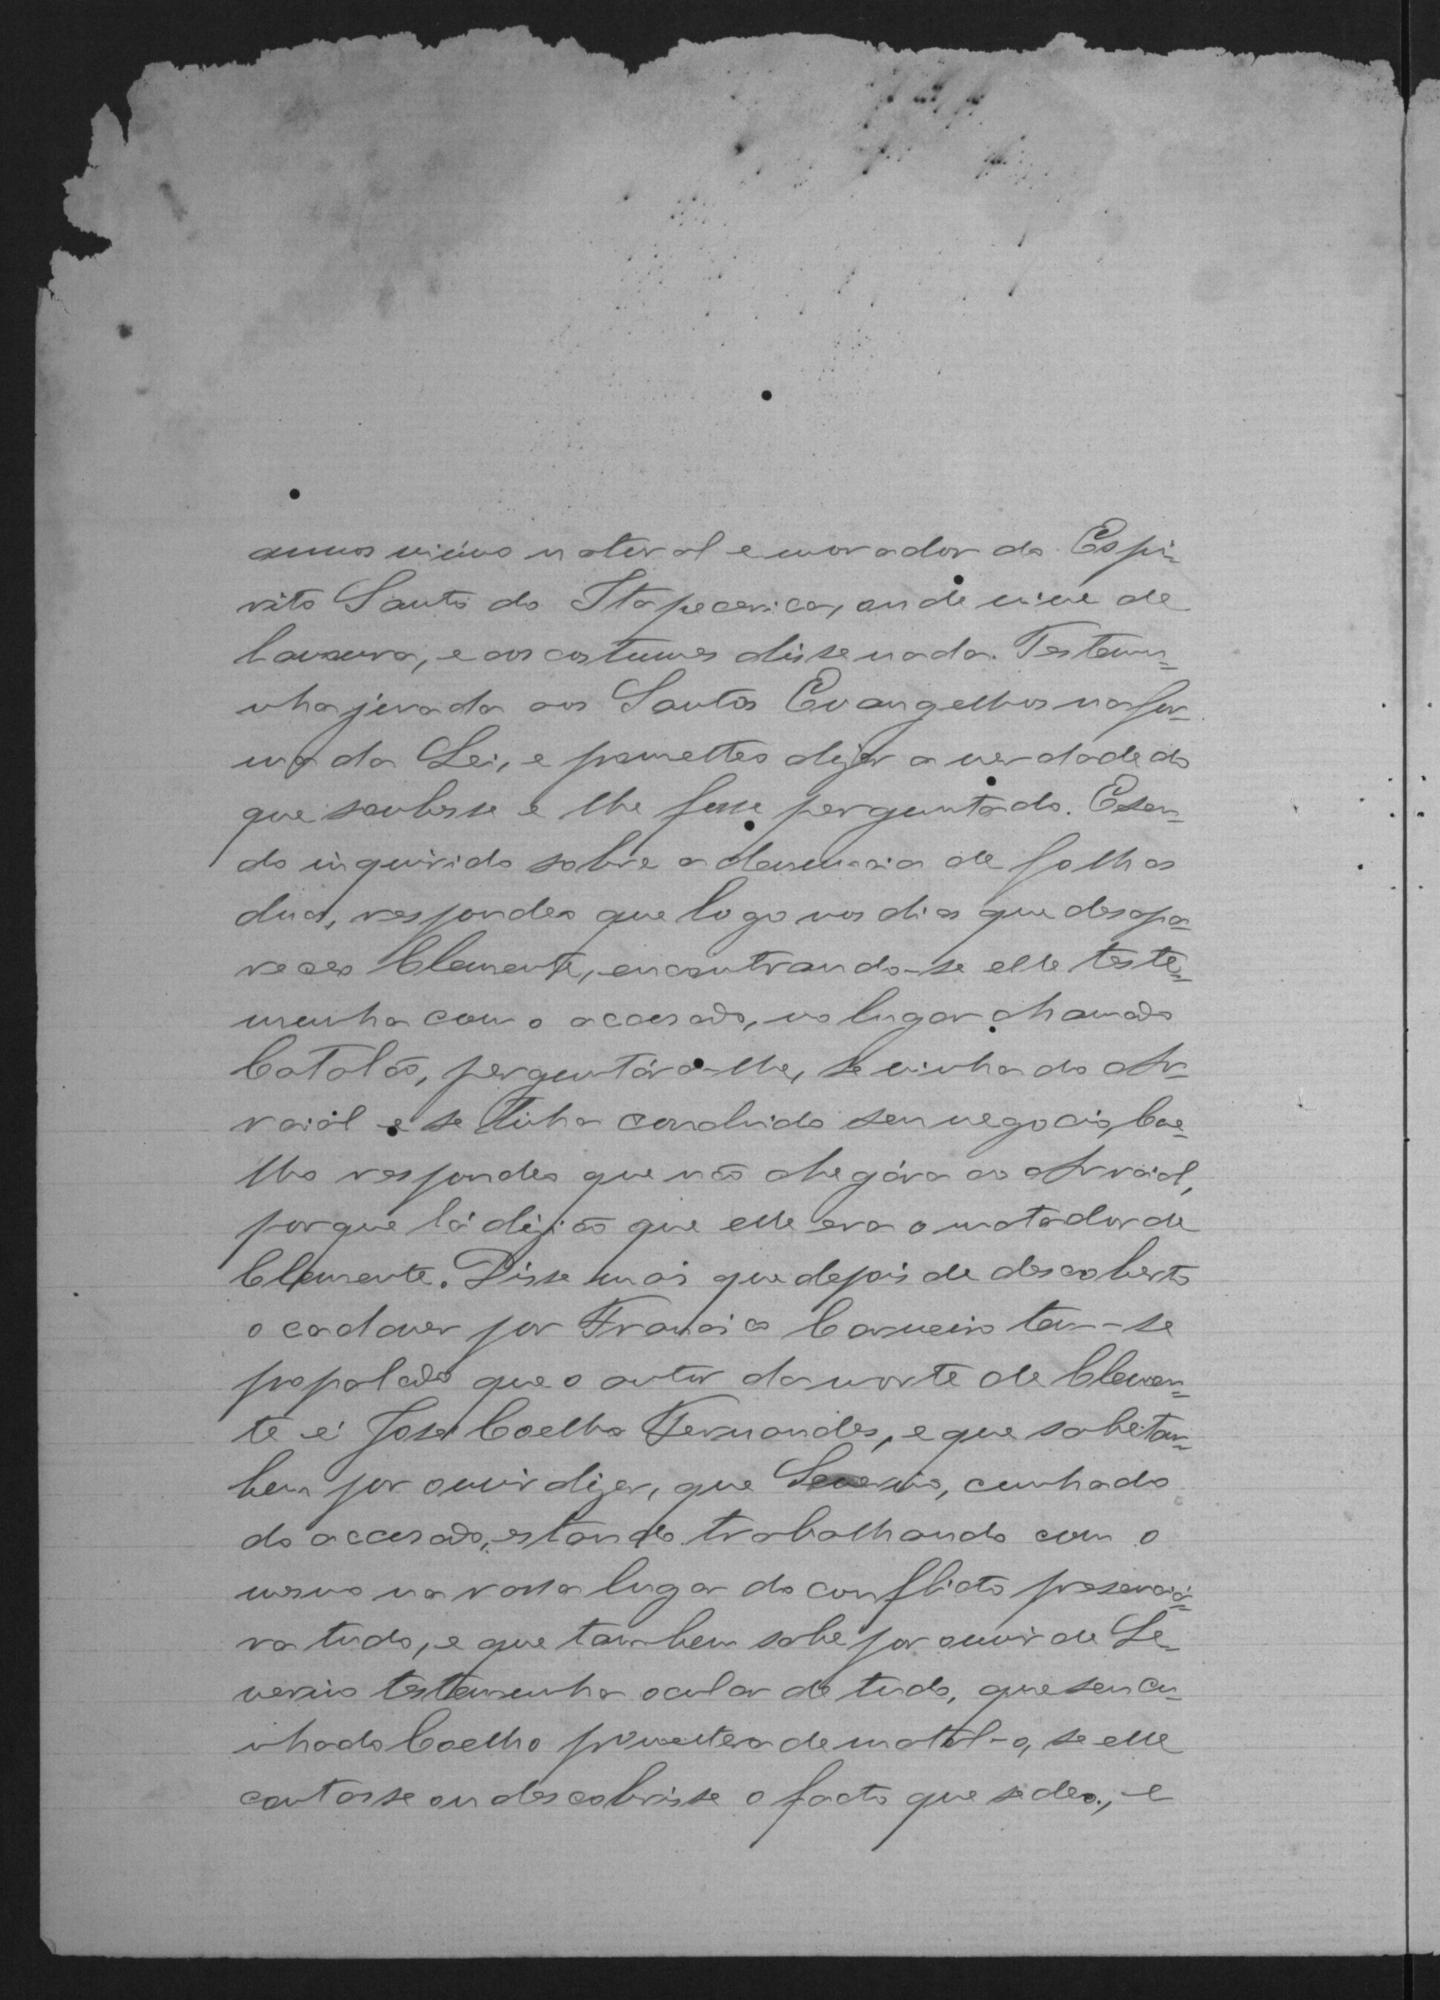 annos viuvo natural e morador do Espi-
rito Santo do Itapecerica, onde vive de
lavoura, e aos costumes disse nada. Testemu-
nha jurada aos Santos Evangelhos na for-
ma da Lei, e prometteo dizer a verdade do
que soubesse e lhe fosse perguntado. E sen-
do inquirido sobre a denuncia de folhas
duas, respondeo que logo nos dias que desapa-
receo Clemente, encontrando-se elle teste-
munha com o accusado, no lugar chamado
Catalão, perguntára-lhe, se vinha do Ar-
raial e se tinha concluido seu negocio, Coe-
lho respondeo que não chegára ao Arraial,
porque lá dizião que elle era o matador de
Clemente. Disse mais que depois de descoberto
o cadaver por Francisco Carneiro tem-se
propalado que o autor da morte de Clemen-
te é José Coelho Fernandes, e que sabe tam-
bem por ouvir dizer, que Severino, cunhado
do accusado, estando trabalhando com o
mesmo na rossa lugar do conflicto presenciá-
ra tudo, e que tambem sabe por ouvir de Se-
verino testemunha ocular de tudo, que seu cu-
nhado Coelho promettera de matal-o, se elle
contasse ou descobrisse o facto que se deo, e